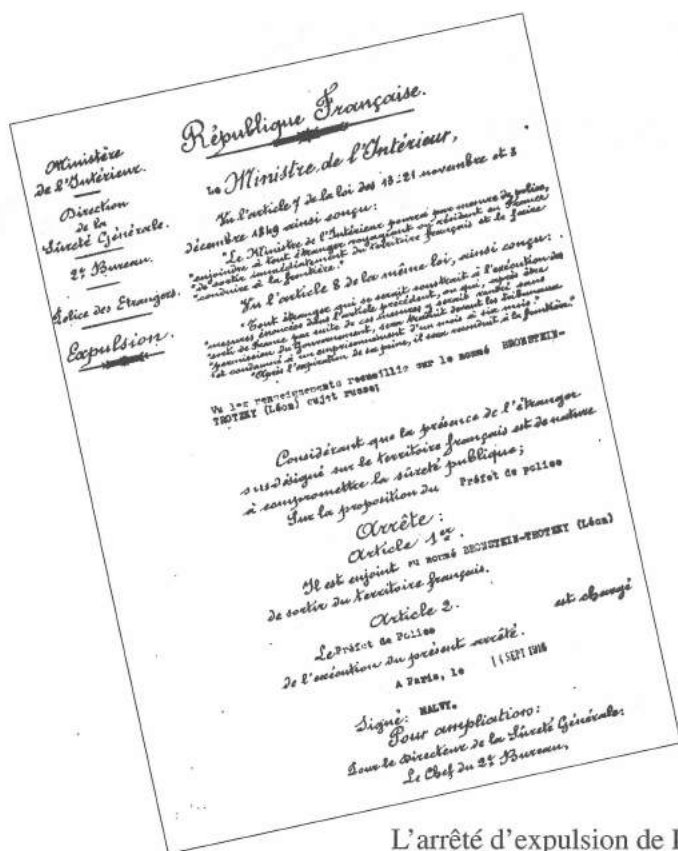 République Française.
Ministère
de l'Intérieur.
Direction
de la
Sûreté Générale.
2e Bureau.
Police des Etrangers.
Expulsion.
Le Ministre de l'Intérieur,
Vu l'article 7 de la loi des 13-21 novembre et 3
décembre 1849 ainsi conçu:
"Le Ministre de l'Intérieur pourra par mesure de police,
"enjoindre à tout étranger voyageant ou résidant en France
"de sortir immédiatement du territoire français et le faire
"conduire à la frontière."
Vu l'article 8 de la même loi, ainsi conçu:
"Tout étranger qui se serait soustrait à l'exécution des
"mesures énoncées dans l'article précédent, ou qui, après être
"sorti de France par suite de ces mesures y serait rentré sans
"permission du Gouvernement, sera traduit devant les tribunaux
"et condamné à un emprisonnement d'un mois à six mois."
"Après l'expiration de sa peine, il sera reconduit à la frontière."
Vu les renseignements recueillis sur le nommé BRONSTEIN-
TROTZKY (Léon) sujet russe;
Considérant que la présence de l'étranger
susdésigné sur le territoire français est de nature
à compromettre la sûreté publique;
Sur la proposition du Préfet de police
Arrête:
Article 1er.
Il est enjoint au nommé BRONSTEIN-TROTZKY (Léon)
de sortir du territoire français.
Article 2.
Le Préfet de Police est chargé
de l'exécution du présent arrêté.
A Paris, le 14 SEPT 1916
Signé: MALVY.
Pour ampliation:
Pour le Directeur de la Sûreté Générale:
Le Chef du 2e Bureau,
L'arrêté d'expulsion de